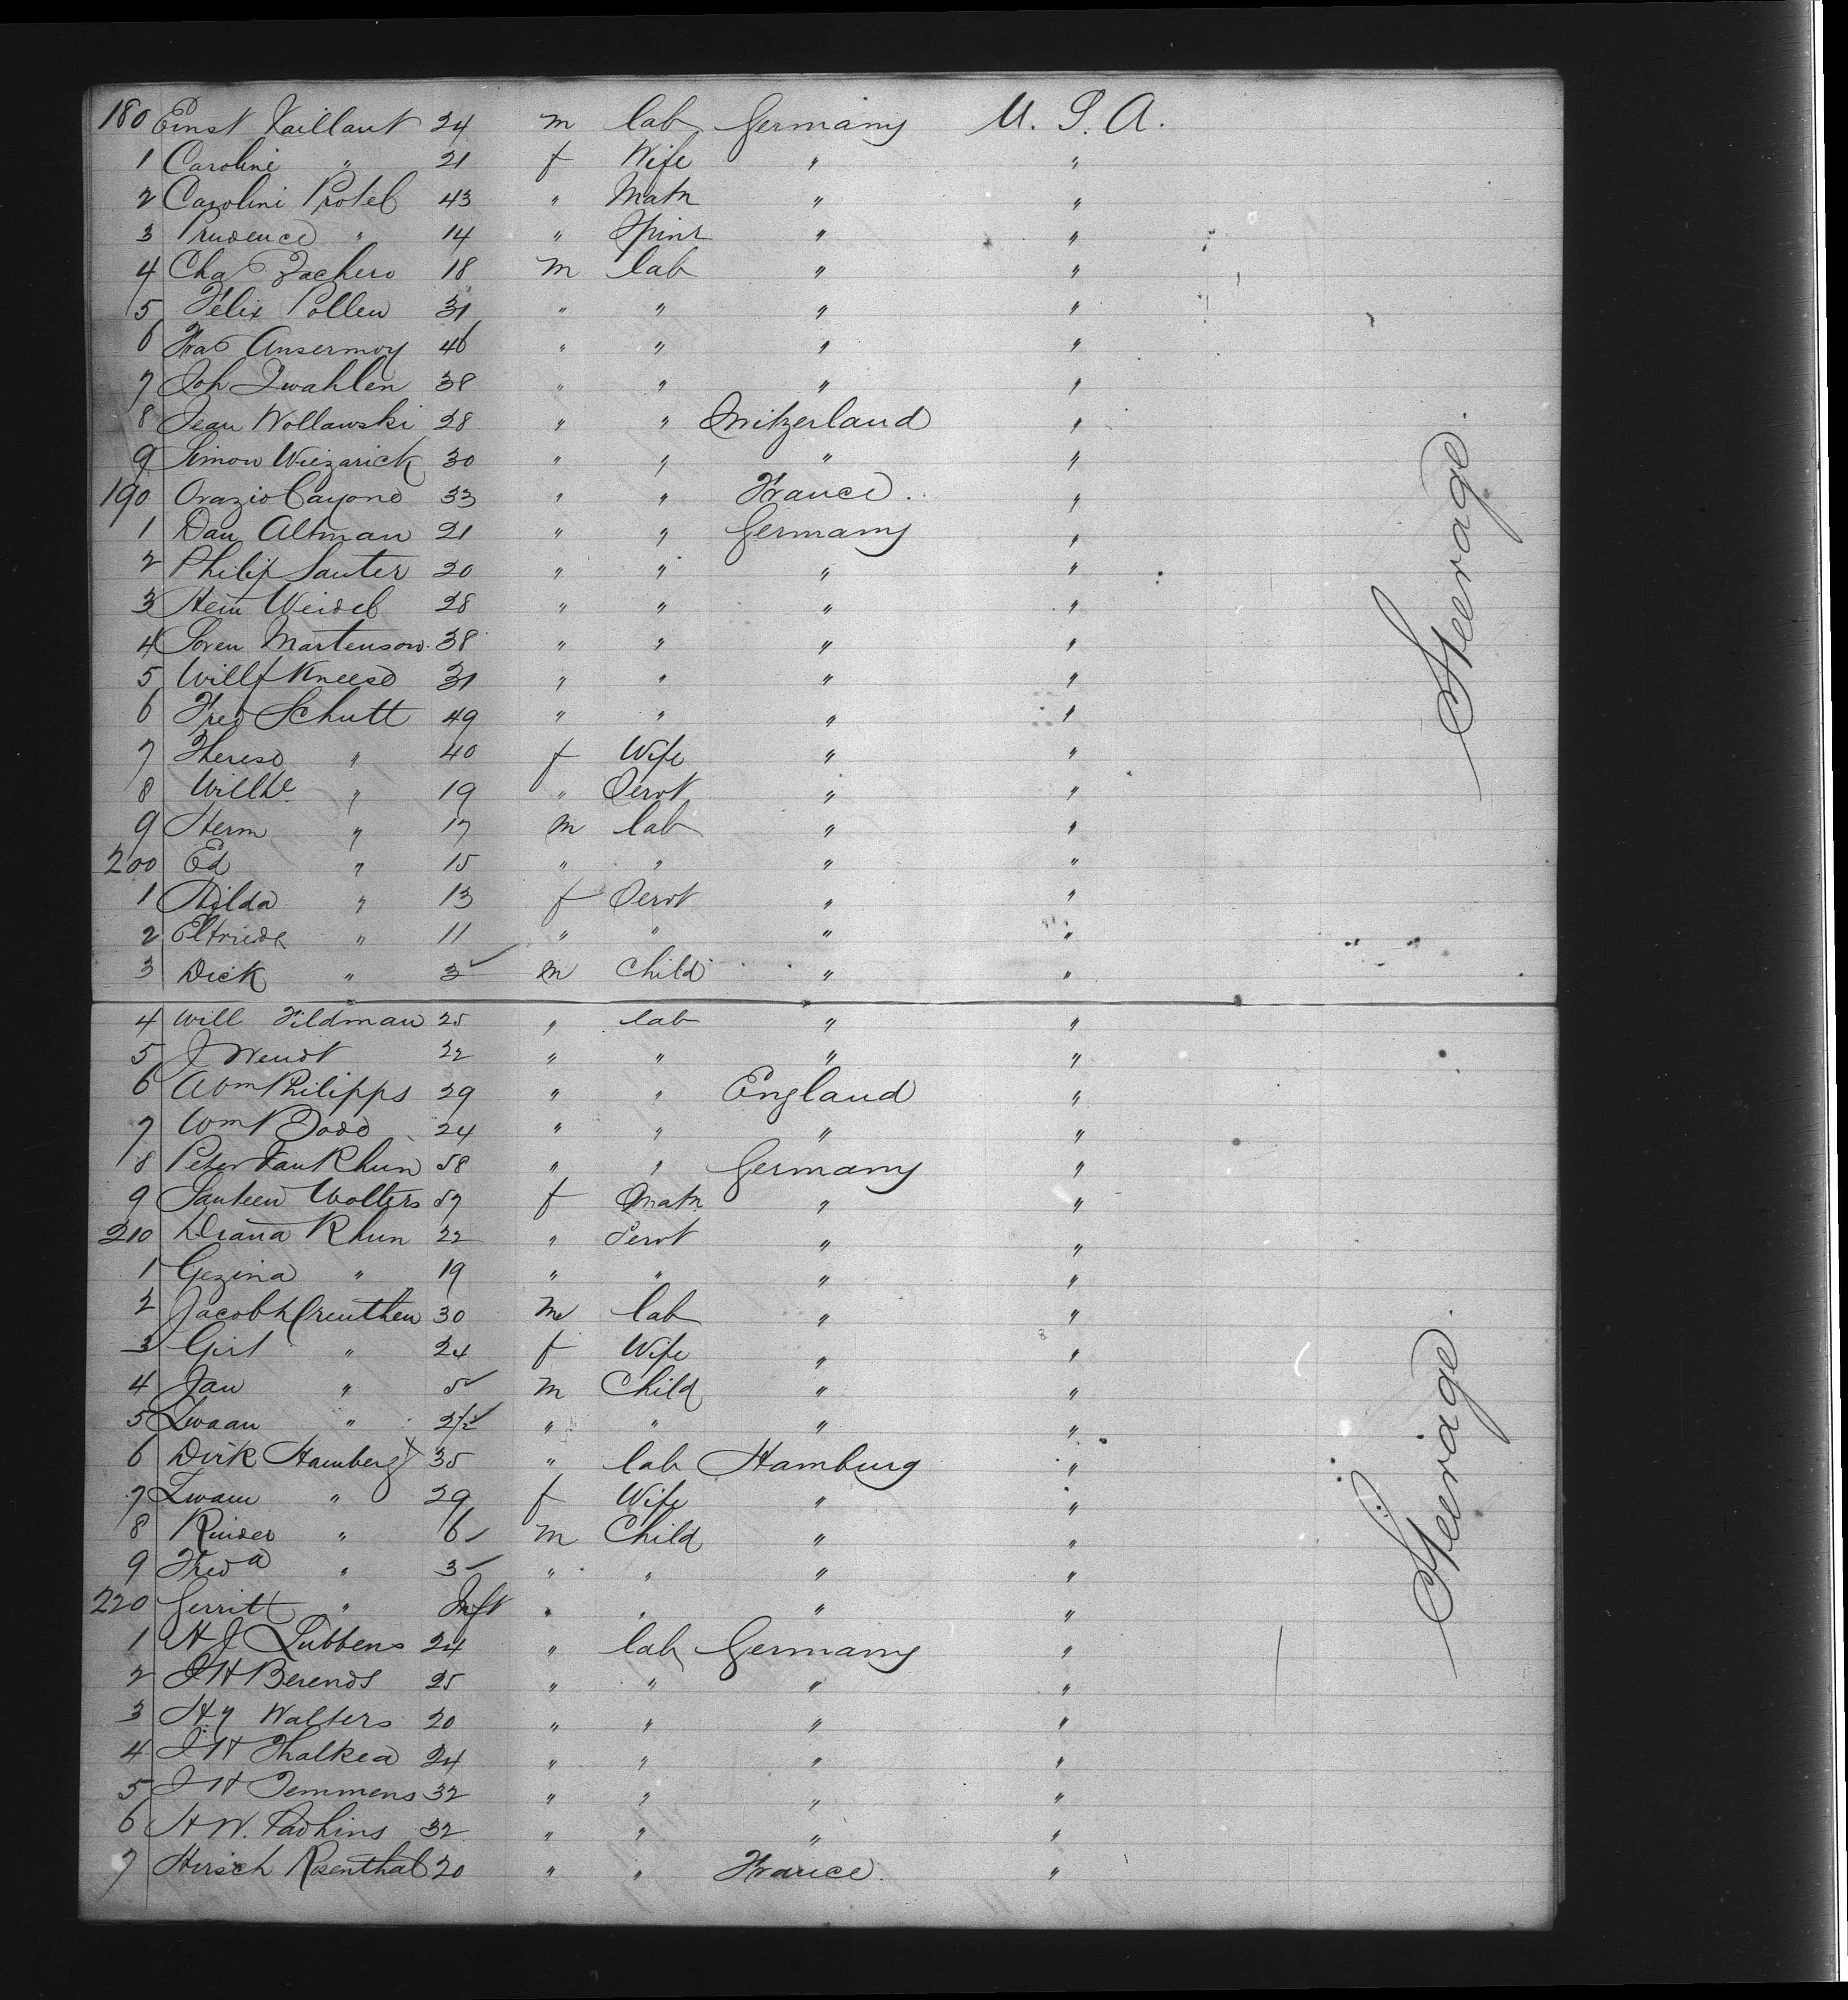 180 Ernst Vaillant 24 m lab Germany U. S. A.
1 Caroline " 21 f Wife " "
2 Carolini Protel 43 " Matn " "
3 Prudence " 14 " Spinr " "
4 Chas Zachero 18 m lab " "
5 Felix Pollen 31 " " " "
6 Fras Ansermoy 46 " " " "
7 Joh Zwahlen 38 " " " "
8 Jean Wollawski 28 " " Switzerland "
9 Simon Wiezarick 30 " " " "
190 Orazio Cayone 33 " " France. "
1 Dan Altman 21 " " Germany "
2 Philip Sauter 20 " " " "
3 Hein Weidel 28 " " " "
4 Soren Martenson 38 " " " "
5 Willy Kneese 31 " " " "
6 Fred Schutt 49 " " " "
7 Therese " 40 f Wife " "
8 Willhe " 19 " Servt " "
9 Herm " 17 m lab " "
200 Ed " 15 " " " "
1 Hilda " 13 f Servt " "
2 Elfriede " 11 " " " "
3 Dick " 3 m Child " "
4 Will Fildman 25 " lab " "
5 J Wendt 22 " " " "
6 Wm Philipps 29 " " England "
7 Wm Dodd 24 " " " "
8 Peter Van Rhun 58 " " Germany "
9 Wolters 57 f Matn " "
210 Diana Rhun 22 " Servt " "
1 Gezina " 19 " " " "
2 Jacob Kreuthen 30 m lab " "
3 Girt " 24 f Wife " "
4 Jan " 5 m Child " "
5 Swaan " 2½ " " " "
6 Dirk Hamberg 35 " lab Hamburg "
7 Swaan " 29 f Wife " "
8 Rinder " 6 m Child " "
9 Freda " 3 " " " "
220 Gerritt " Inft " " " "
1 H J Lubbens 24 " lab Germany "
2 J H Berends 25 " " " "
3 Hy Walters 20 " " " "
4 J H Thalkea 24 " " " "
5 J H Temmens 32 " " " "
6 H W. 32 " " " "
7 Hirsch Rosenthal 20 " " France. "
Steerage.
Steerage.